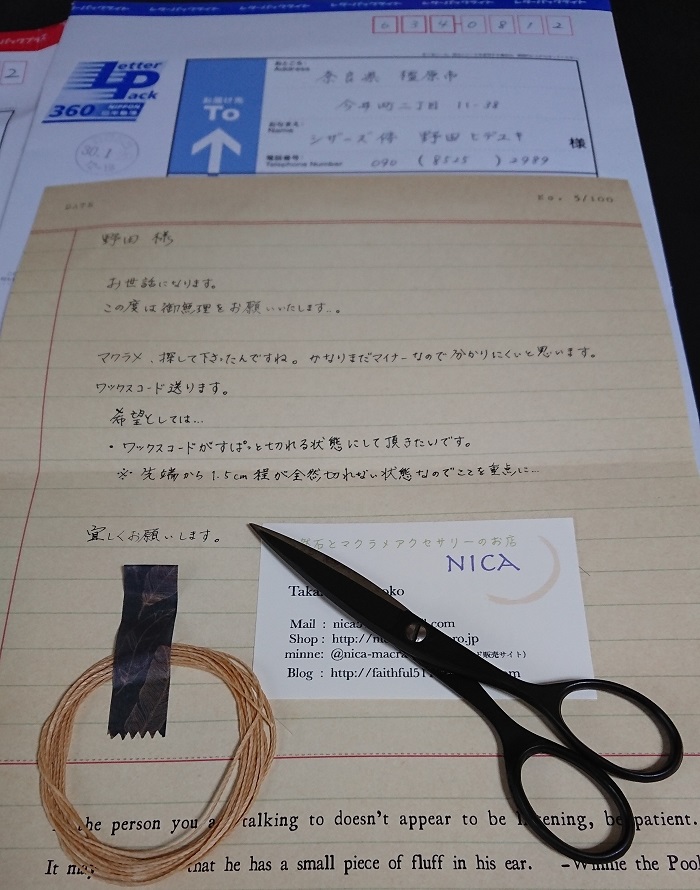 レターパックライト レターパックライト レターパックライト
レターパックプラス
2
6340812
Letter
Pack
360 NIPPON 日本郵便
30.1
お届け先
To
おところ:
Address
奈良県 橿原市
今井町二丁目 11-38
おなまえ:
Name
シザーズ停 野田ヒデユキ 様
電話番号:
Telephone Number 090 (8525) 2989
DATE No. 5/100
野田 様
お世話になります。
この度は御無理をお願いいたします…。
マクラメ、探して下さったんですね。かなりまだマイナーなので分かりにくいと思います。
ワックスコード送ります。
希望としては…
・ワックスコードがすぱっと切れる状態にして頂きたいです。
※ 先端から1.5cm程が全然切れない状態なのでここを重点に…
宜しくお願いします。
石とマクラメアクセサリーのお店
NICA
Taka oko
Mail : nica .com
Shop : http:// ro.jp
minne: @nica-macra 販売サイト)
Blog : http://faithful51 om
the person you a talking to doesn't appear to be listening, be patient.
It may that he has a small piece of fluff in his ear. -Winnie the Pooh